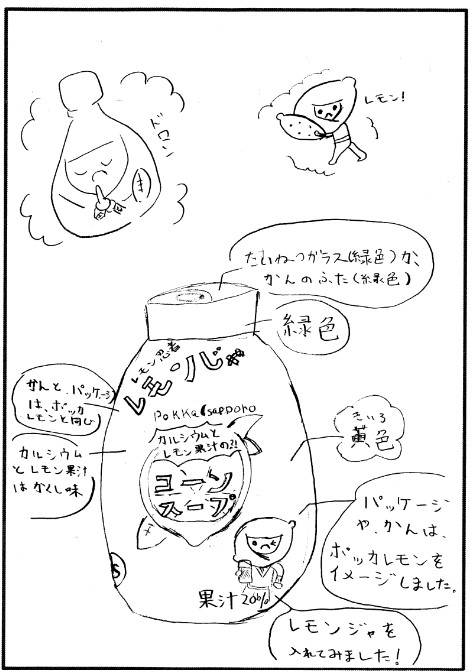 レモン!
たいねつガラス(緑色)か、
かんのふた(緑色)
緑色
レモン忍者
レモンジャ
かんと、パッケージ
は、ポッカ
レモンと同じ
POKKA sapporo
カルシウムと
レモン果汁の?!
コーン
スープ
カルシウム
とレモン果汁
はかくし味
きいろ
黄色
パッケージ
や、かんは、
ポッカレモンを
イメージしました。
S
果汁20%
レモンジャを
入れてみました!